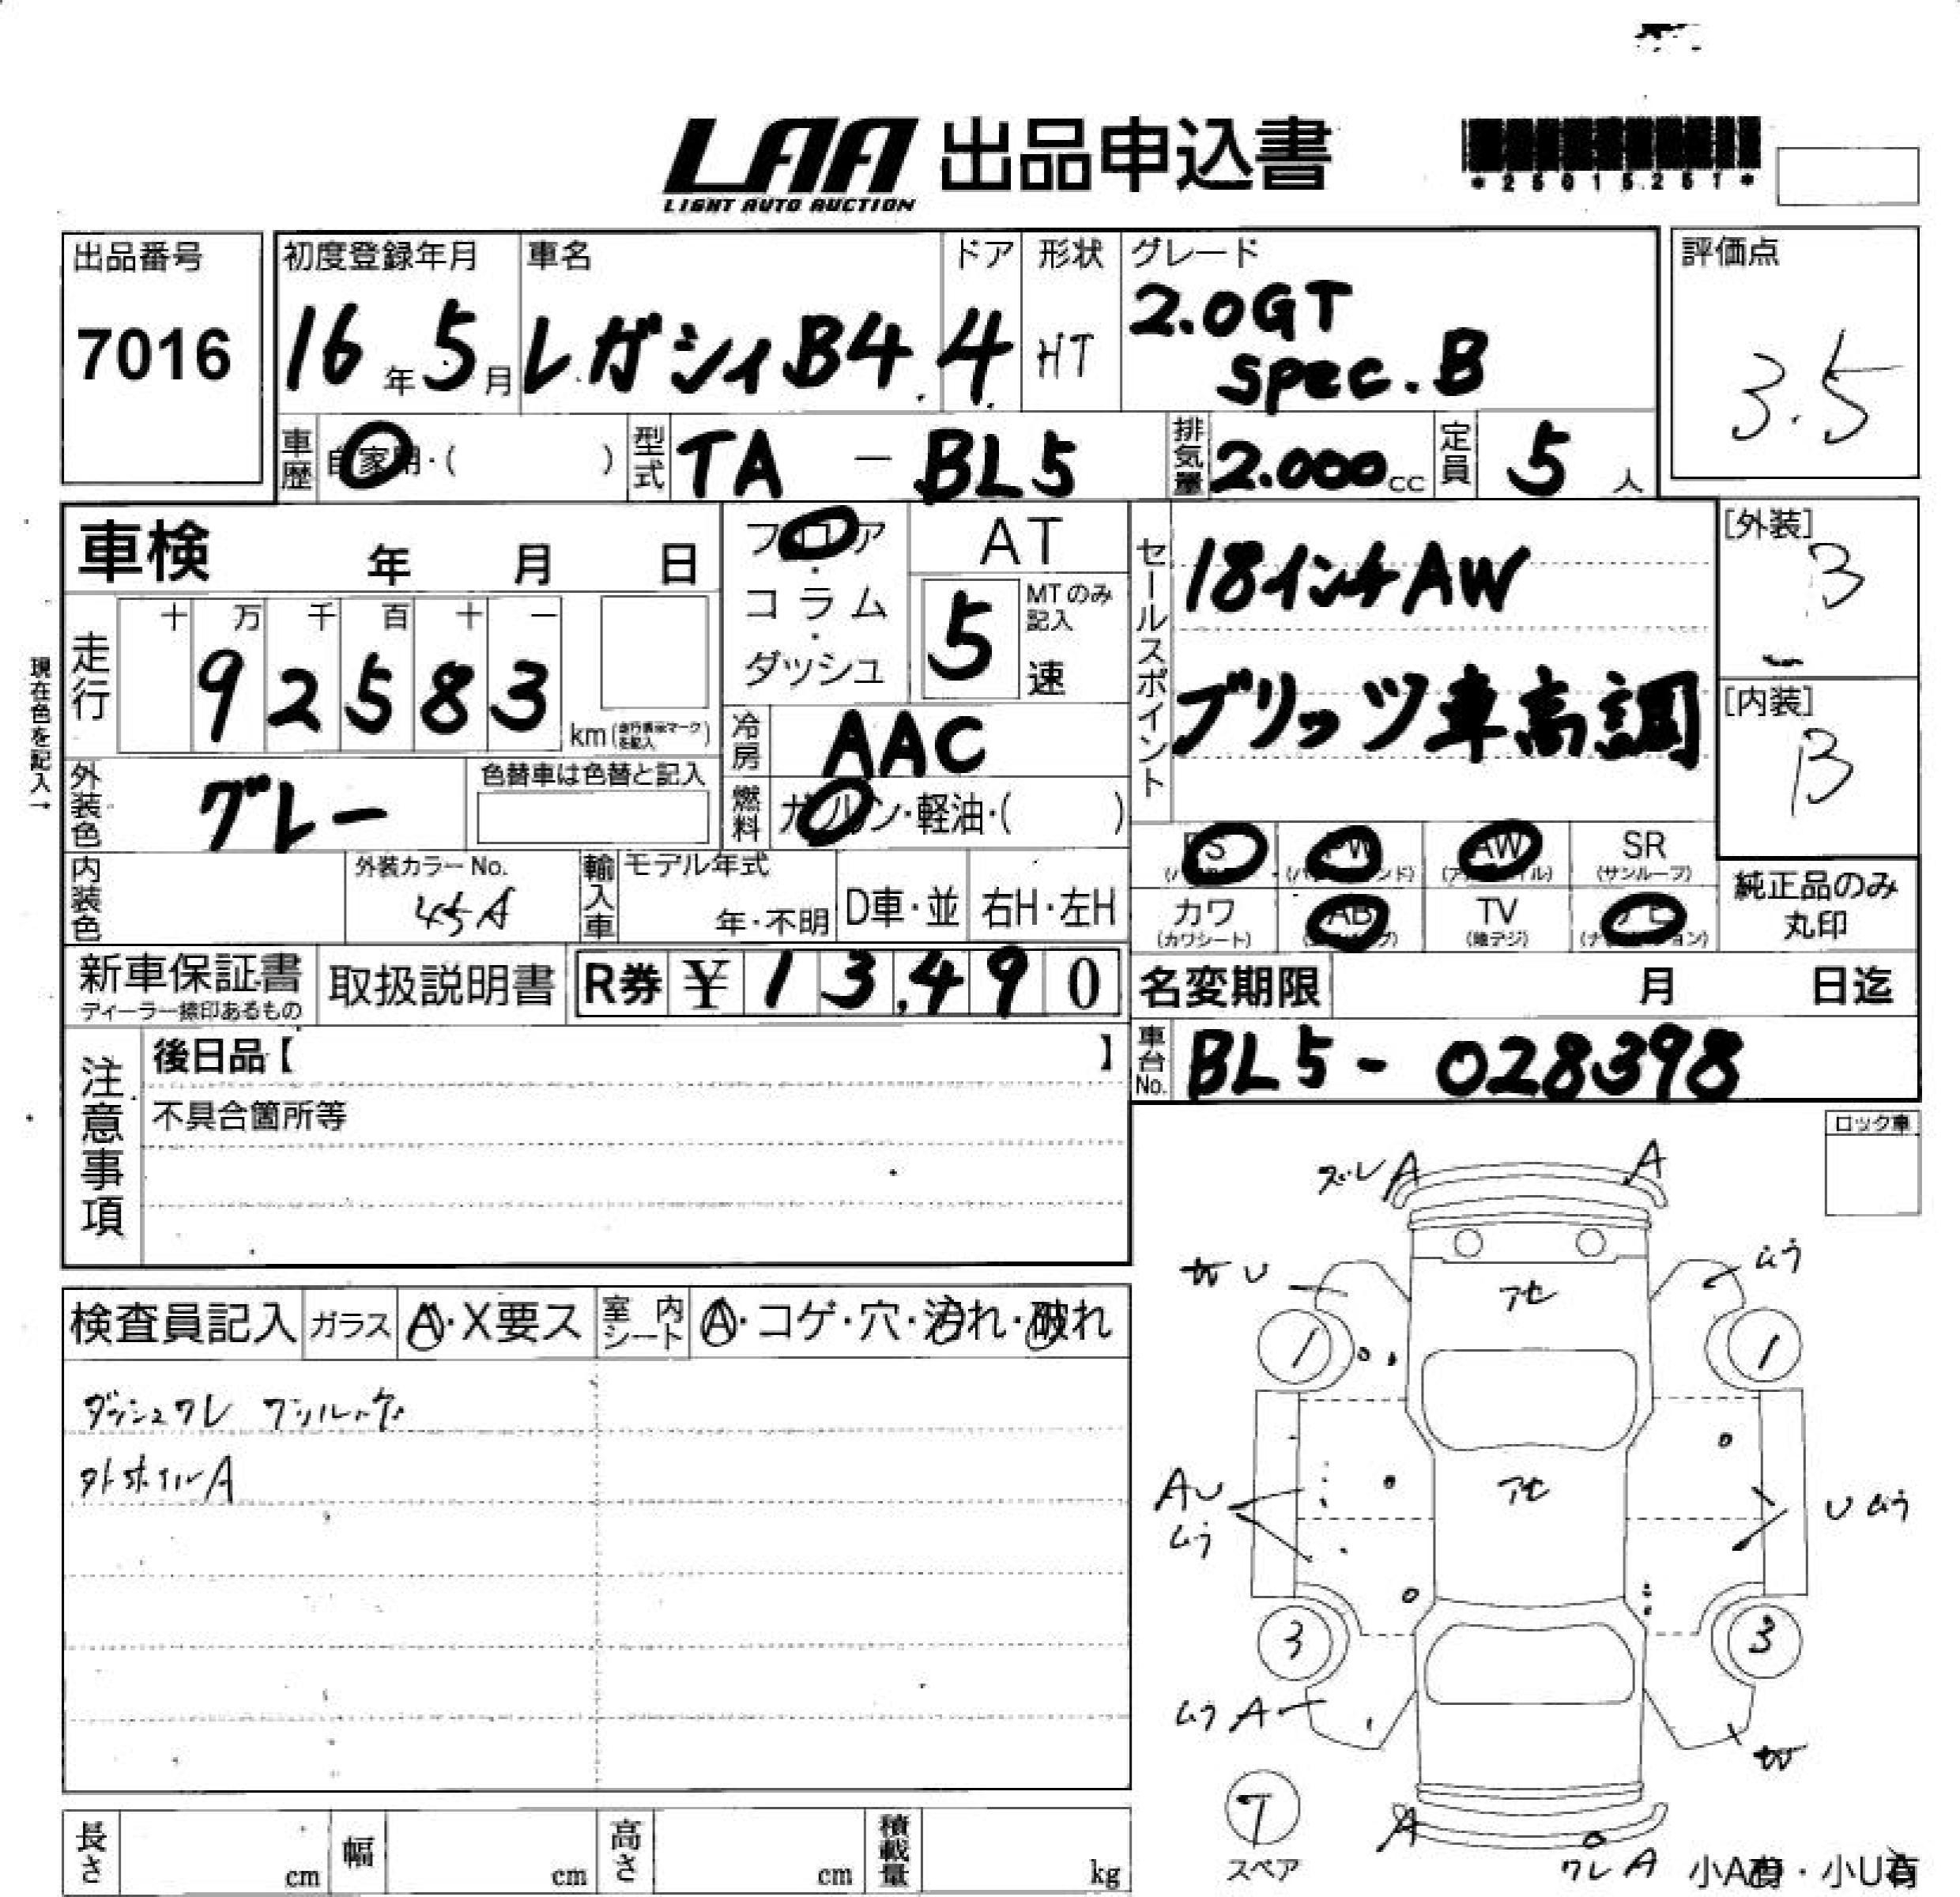 LAA 出品申込書
LIGHT AUTO AUCTION
出品番号 初度登録年月 車名 ドア 形状 グレード 評価点
7016 16年5月 レガシィB4 4 HT 2.0GT
spec.B
3.5
車歴 自家用・( ) 型式 TA - BL5 排気量 2.000cc 定員 5人
車検 年 月 日
フロア・コラム・ダッシュ
AT
5 MTのみ記入 速
セールスポイント
18インチAW
ブリッツ車高調
[外装]
3
[内装]
B
現在色を記入→
走行 十 万 千 百 十 一
92583 km
冷房 AAC
外装色 グレー 色替車は色替と記入
燃料 ガソリン・軽油・( )
内装色 外装カラーNo. 45A
輸入車 モデル年式 年・不明 D車・並 右H・左H
PS PW AW SR
(サンルーフ)
カワ AB TV ナビ
(カワシート) (地デジ)
純正品のみ
丸印
新車保証書 取扱説明書 R券 ¥13,490
名変期限 月 日迄
車台No. BL5-028398
注意事項
後日品【 】
不具合箇所等
ロック車
検査員記入 ガラス A・X要ス 室内シート A・コゲ・穴・汚れ・破れ
ダッシュワレ
外ホイルA
ズレ A A
U
アセ
1 1
アセ
AU
ムラ
U ムラ
3 3
ムラ A
T
スペア
A
ワレ A
小A有・小U有
長さ cm 幅 cm 高さ cm 積載量 kg